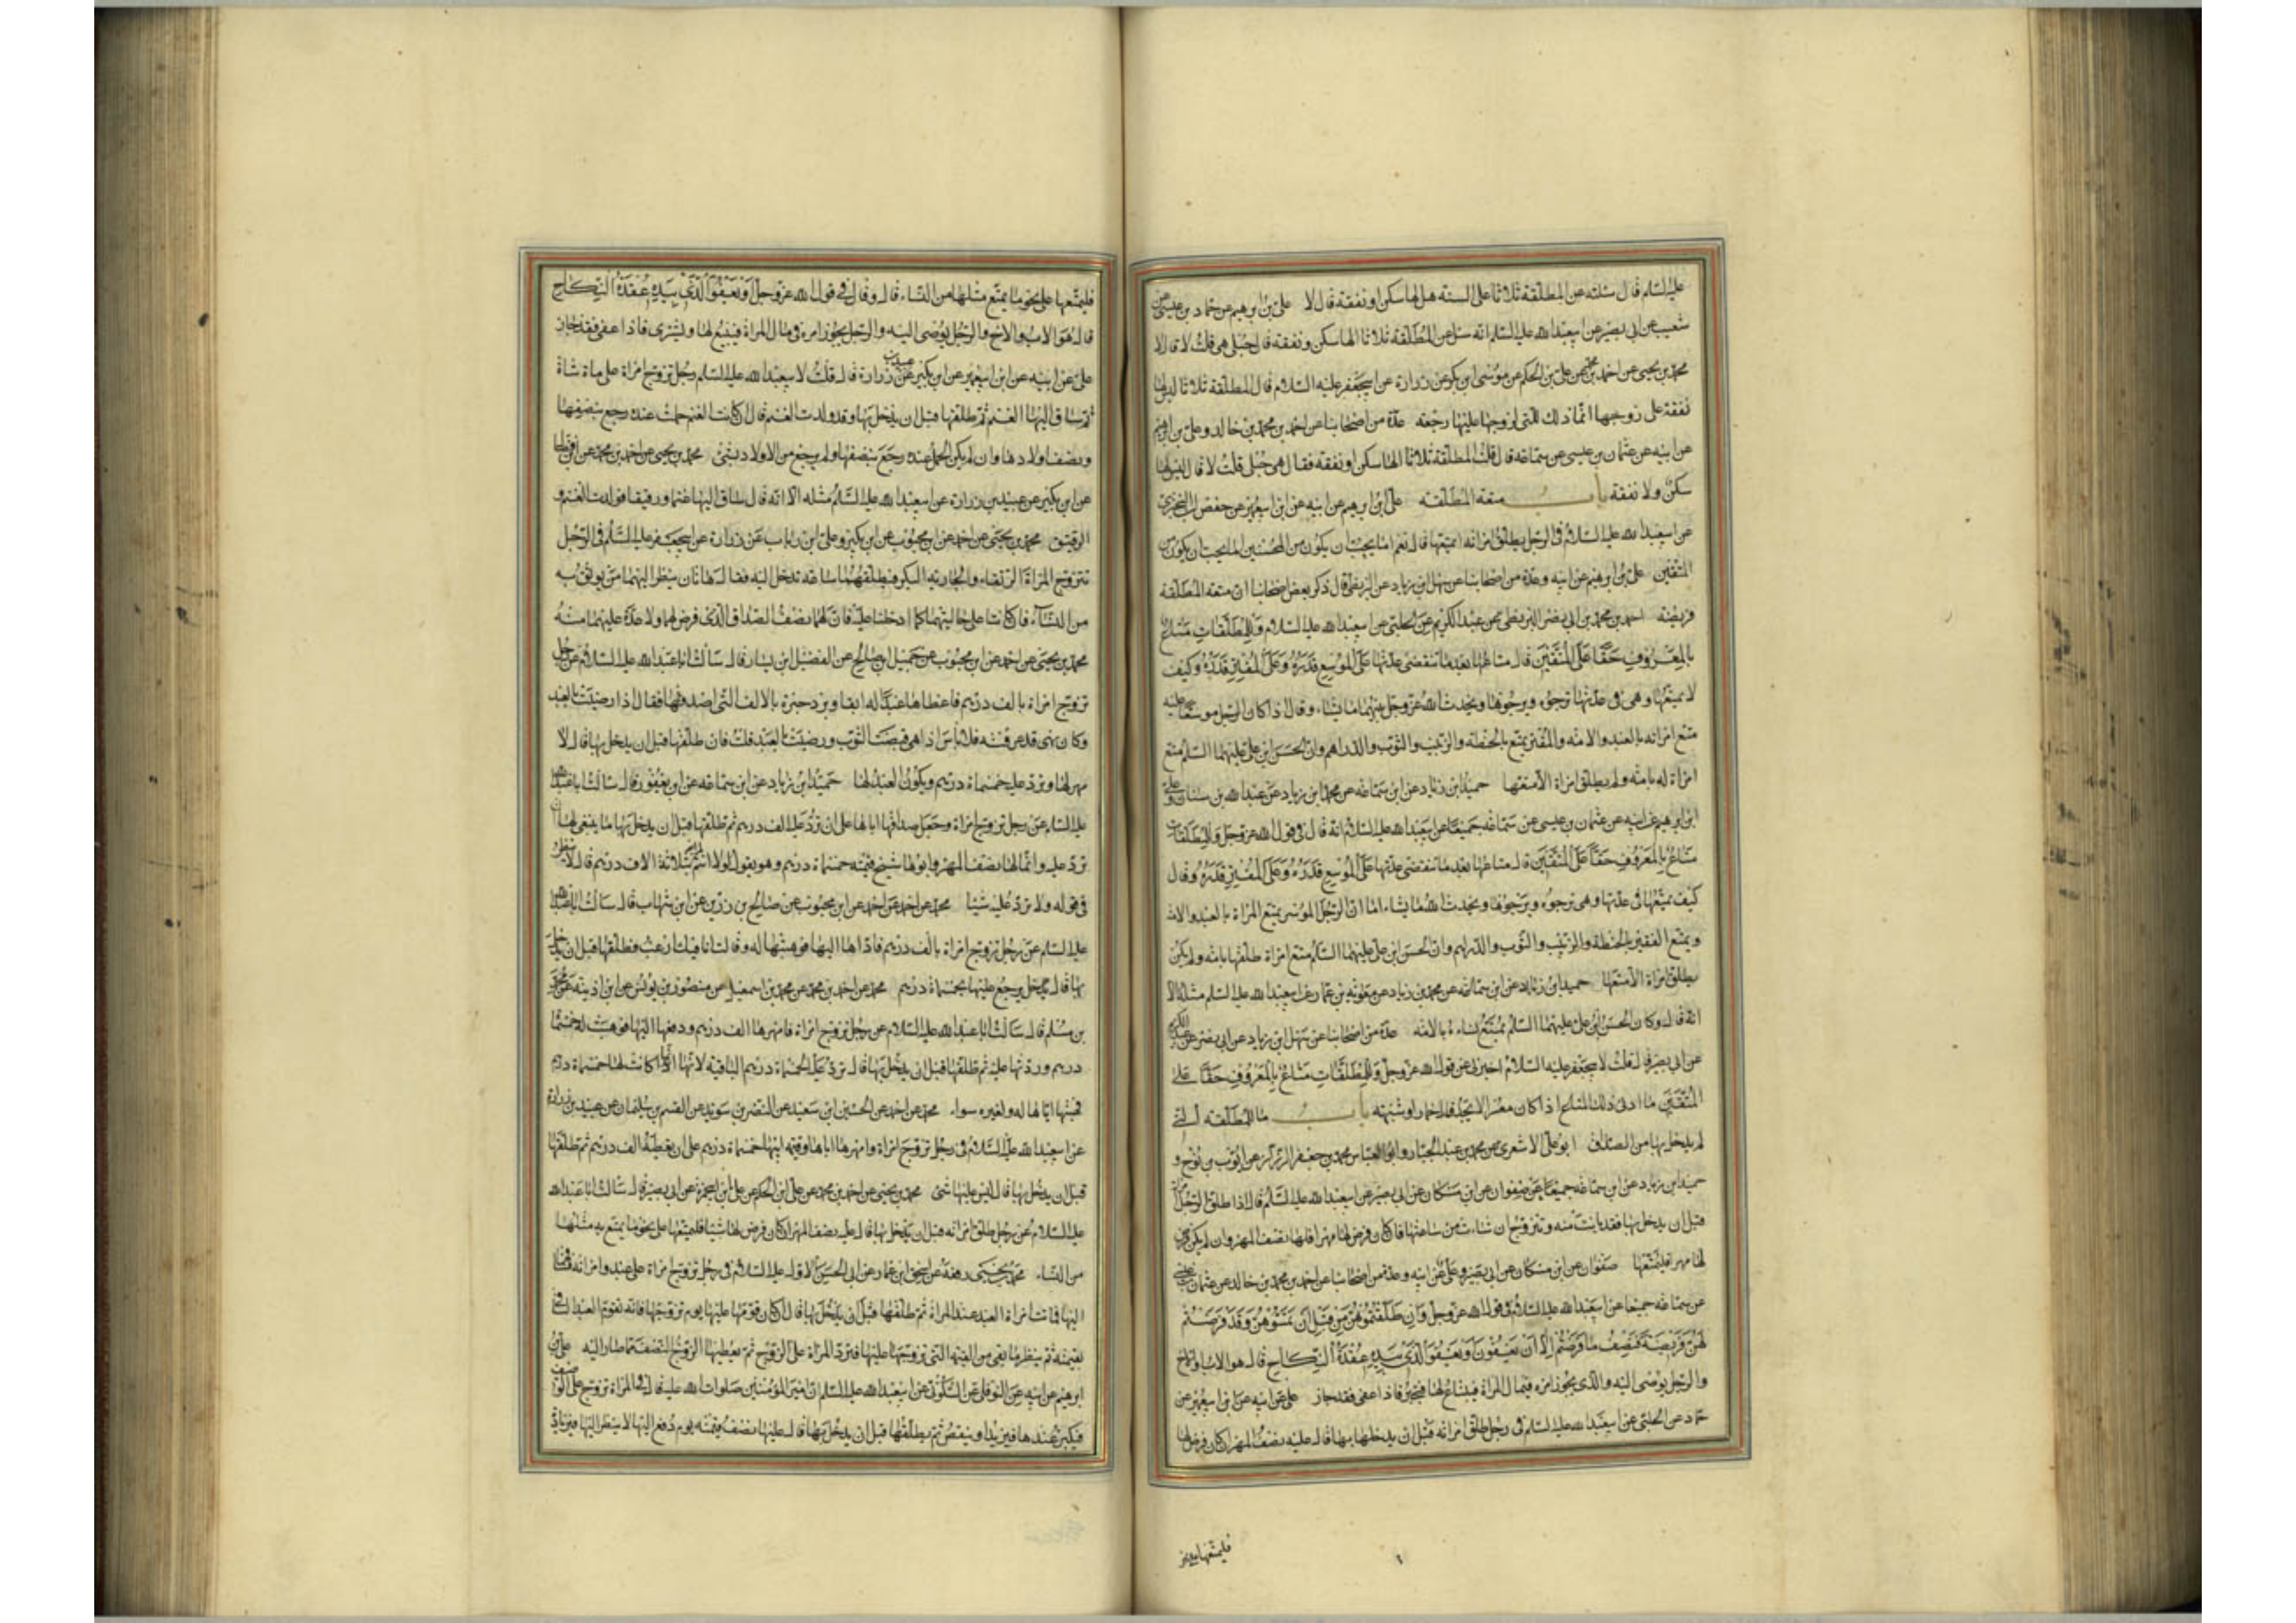 عليه السلام قال سئلته عن المطلقة ثلاثا على السنة هل لها سكنى او نفقة قال لا علي بن ابرهيم عن حماد بن عيسى عن
شعيب عن ابي بصير عن ابيعبد الله عليه السلام انه سئل عن المطلقة ثلاثا الها سكنى ونفقة قال حبلى هي قلت لا قال لا
محمد بن يحيى عن احمد بن محمد عن علي بن الحكم عن موسى ابن بكر عن زرارة عن ابيجعفر عليه السلام قال المطلقة ثلاثا ليس لها
نفقة على زوجها انما ذلك للتي لزوجها عليها رجعة عدة من اصحابنا عن احمد بن محمد بن خالد وعلي بن ابرهيم
عن ابيه عن عثمان بن عيسى عن سماعة قال قلت المطلقة ثلاثا الها سكنى او نفقة فقال هي حبلى قلت لا قال ليس لها
سكنى ولا نفقة باب متعة المطلقة علي ابن ابرهيم عن ابيه عن ابن ابيعمير عن حفص بن البختري
عن ابيعبد الله عليه السلام في الرجل يطلق امراته ايمتعها قال نعم اما يحب ان يكون من المحسنين اما يحب ان يكون من
المتقين علي بن ابرهيم عن ابيه وعدة من اصحابنا عن سهل ابن زياد عن البزنطي قال ذكر بعض اصحابنا ان متعة المطلقة
فريضة احمد بن محمد بن ابي نصر البزنطي عن عبد الكريم عن الحلبي عن ابيعبد الله عليه السلام وللمطلقات متاع
بالمعروف حقا على المتقين قال متاعها بعد ما تنقضي عدتها على الموسع قدره وعلى المقتر قدره وكيف
لا يمتعها وهي في عدتها ترجوه ويرجوها ويحدث الله عز وجل بينهما ما يشاء وقال اذا كان الرجل موسعا عليه
متع امراته بالعبد والامة والمقتر يمتع بالحنطة والزبيب والثوب والدراهم وان الحسن ابن علي عليهما السلم متع
امراة له بامة ولم يطلق امراة الا متعها حميد ابن زياد عن ابن سماعة عن محمد ابن زياد عن عبد الله بن سنان وعلي
ابن ابرهيم عن ابيه عن عثمان بن عيسى عن سماعة جميعا عن ابيعبد الله عليه السلام انه قال في قول الله عز وجل وللمطلقات
متاع بالمعروف حقا على المتقين قال متاعها بعد ما تنقضي عدتها على الموسع قدره وعلى المقتر قدره وقال
كيف يمتعها في عدتها وهي ترجوه ويرجوها ويحدث الله ما يشاء اما ان الرجل الموسر يمتع المراة بالعبد والامة
ويمتع الفقير بالحنطة والزبيب والثوب والدراهم وان الحسن ابن علي عليهما السلام متع امراة طلقها بامة ولم يكن
يطلق امراة الا متعها حميد ابن زياد عن ابن سماعة عن محمد بن زياد عن معوية بن عمار عن ابيعبد الله عليه السلم مثله الا
انه قال وكان الحسن ابن علي عليهما السلم يمتع نساءه بالامة عدة من اصحابنا عن سهل ابن زياد عن ابي نصر عن عبد الكريم
عن ابي بصير قال قلت لابيجعفر عليه السلام اخبرني عن قول الله عز وجل وللمطلقات متاع بالمعروف حقا على
المتقين ما ادنى ذلك المتاع اذا كان معسرا لا يجد قال خمار او شبهه باب ما للمطلقة التي
لم يدخل بها من الصداق ابو علي الاشعري عن محمد بن عبد الجبار وابو العباس محمد بن جعفر الرزاز عن ايوب بن نوح و
حميد ابن زياد عن ابن سماعة جميعا عن صفوان عن ابن مسكان عن ابي بصير عن ابيعبد الله عليه السلم قال اذا طلق الرجل امراته
قبل ان يدخل بها فقد بانت منه وتتزوج ان شاءت من ساعتها فان كان فرض لها مهرا فلها نصف المهر وان لم يكن فرض
لها مهرا فليمتعها صفوان عن ابن مسكان عن ابي بصير وعلي عن ابيه وعدة من اصحابنا عن احمد بن محمد بن خالد عن عثمان بن عيسى
عن سماعة جميعا عن ابيعبد الله عليه السلام في قول الله عز وجل وان طلقتموهن من قبل ان تمسوهن وقد فرضتم
لهن فريضة فنصف ما فرضتم الا ان يعفون او يعفوا الذي بيده عقدة النكاح قال هو الاب او الاخ
والرجل يوصى اليه والذي يجوز امره في مال المراة فيبتاع لها فتجيز فاذا عفى فقد جاز علي عن ابيه عن ابن ابيعمير عن
حماد عن الحلبي عن ابيعبد الله عليه السلم في رجل طلق امراته قبل ان يدخل بها قال عليه نصف المهر ان كان فرض لها
فليمتعها على نحو
فليمتعها على نحو ما يمتع مثلها من النساء قال وقال في قول الله عز وجل او يعفوا الذي بيده عقدة النكاح
قال هو الاب والاخ والرجل يوصى اليه والرجل يجوز امره في مال المراة فيبيع لها ويشترى فاذا عفى فقد جاز
علي عن ابيه عن ابن ابيعمير عن ابن بكير عن عبيد بن زرارة قال قلت لابيعبد الله عليه السلم رجل تزوج امراة على ماة شاة
ثم ساق اليها الغنم ثم طلقها قبل ان يدخل بها وقد ولدت الغنم قال ان كانت الغنم حملت عنده رجع بنصفها
ونصف اولادها وان لم يكن الحمل عنده رجع بنصفها ولم يرجع من الاولاد بشئ محمد بن يحيى عن احمد بن محمد عن ابن فضال
عن ابن بكير عن عبيد بن زرارة عن ابيعبد الله عليه السلم مثله الا انه قال ساق اليها غنما ورقيقا فولدت الغنم و
الرقيق محمد بن يحيى عن احمد عن ابن محبوب عن ابن بكير وعلي ابن رياب عن زرارة عن ابيجعفر عليه السلم في الرجل
تتزوج المراة الرتقاء والجارية البكر فيطلقهما ساعة تدخل اليه فقال هاتان ينظر اليهما من يوثق به
من النساء فان كانتا على حاليتهما كما ادخلتا عليه فان لهما نصف الصداق الذي فرض لهما ولا عدة عليهما منه
محمد بن يحيى عن احمد عن ابن محبوب عن جميل ابن صالح عن الفضيل ابن يسار قال سالت ابا عبد الله عليه السلام عن رجل
تزوج امراة بالف درهم فاعطاها عبدا له ابقا وبرد حبرة بالالف التي اصدقها فقال اذا رضيت بالعبد
وكانت قد عرفته فلا باس اذا هي قبضت الثوب ورضيت بالعبد قلت فان طلقها قبل ان يدخل بها قال لا
مهر لها وترد عليه خمسماة درهم ويكون العبد لها حميد ابن زياد عن ابن سماعة عن ابن ابي يعفور قال سالت ابا عبد الله
عليه السلم عن رجل تزوج امراة وجعل صداقها اباها على ان ترد عليه الف درهم ثم طلقها قبل ان يدخل بها ما ينبغي لها ان
ترد عليه وانما لها نصف المهر وابوها شيخ قيمته خمسماة درهم وهو يقول لولا انتم لم ابعه بثلاثة الاف درهم قال لا ينظر
في قوله ولا ترد عليه شيئا محمد عن احمد عن ابن محبوب عن صالح بن رزين عن ابن شهاب قال سالت ابا عبد الله
عليه السلم عن رجل تزوج امراة بالف درهم فاداها اليها فوهبتها له وقالت انا فيك ارغب فطلقها قبل ان يدخل
بها قال يرجع عليها بخمسماة درهم محمد عن احمد بن محمد عن محمد بن اسمعيل عن منصور بن يونس عن ابن اذينة عن محمد
بن مسلم قال سالت ابا عبد الله عليه السلام عن رجل تزوج امراة فامهرها الف درهم ودفعها اليها فوهبت له خمسماة
درهم وردتها عليه ثم طلقها قبل ان يدخل بها قال ترد عليه الخمسماة درهم الباقية لانها انما كانت لها خمسماة درهم
فهبتها اياها له ولغيره سواء محمد عن احمد عن الحسين ابن سعيد عن النضر بن سويد عن القسم بن سليمان عن عبيد بن زرارة
عن ابيعبد الله عليه السلام في رجل تزوج امراة وامهرها اباها وقيمة ابيها خمسماة درهم على ان تعطيه الف درهم ثم طلقها
قبل ان يدخل بها قال ليس عليها شئ محمد بن يحيى عن احمد بن محمد عن علي ابن الحكم عن علي ابن ابيحمزة عن ابي بصير قال سالت ابا عبد الله
عليه السلام عن رجل طلق امراته قبل ان يدخل بها قال عليه نصف المهر ان كان فرض لها شيئا فليمتعها على نحو ما يمتع به مثلها
من النساء محمد بن يحيى رفعه عن اسحق ابن عمار عن ابي الحسن الاول عليه السلام في رجل تزوج امراة على عبد وامراته فساقهما
اليها فماتت امراة العبد عند المراة ثم طلقها قبل ان يدخل بها قال ان كان قومها عليها يوم تزوجها فانه تقوم العبد الباقي
بقيمته ثم ينظر ما بقي من القيمة التي تزوجها عليها فترد المراة على الزوج ثم يعطيها الزوج النصف مما صار اليه علي بن
ابرهيم عن ابيه عن النوفلي عن السكوني عن ابيعبد الله عليه السلم ان امير المؤمنين صلوات الله عليه قال في المراة تزوج على الوصيف
فيكبر عندها فيزيد او ينقص ثم يطلقها قبل ان يدخل بها قال عليها نصف قيمته يوم دفع اليها لا ينظر اليها في زيادة